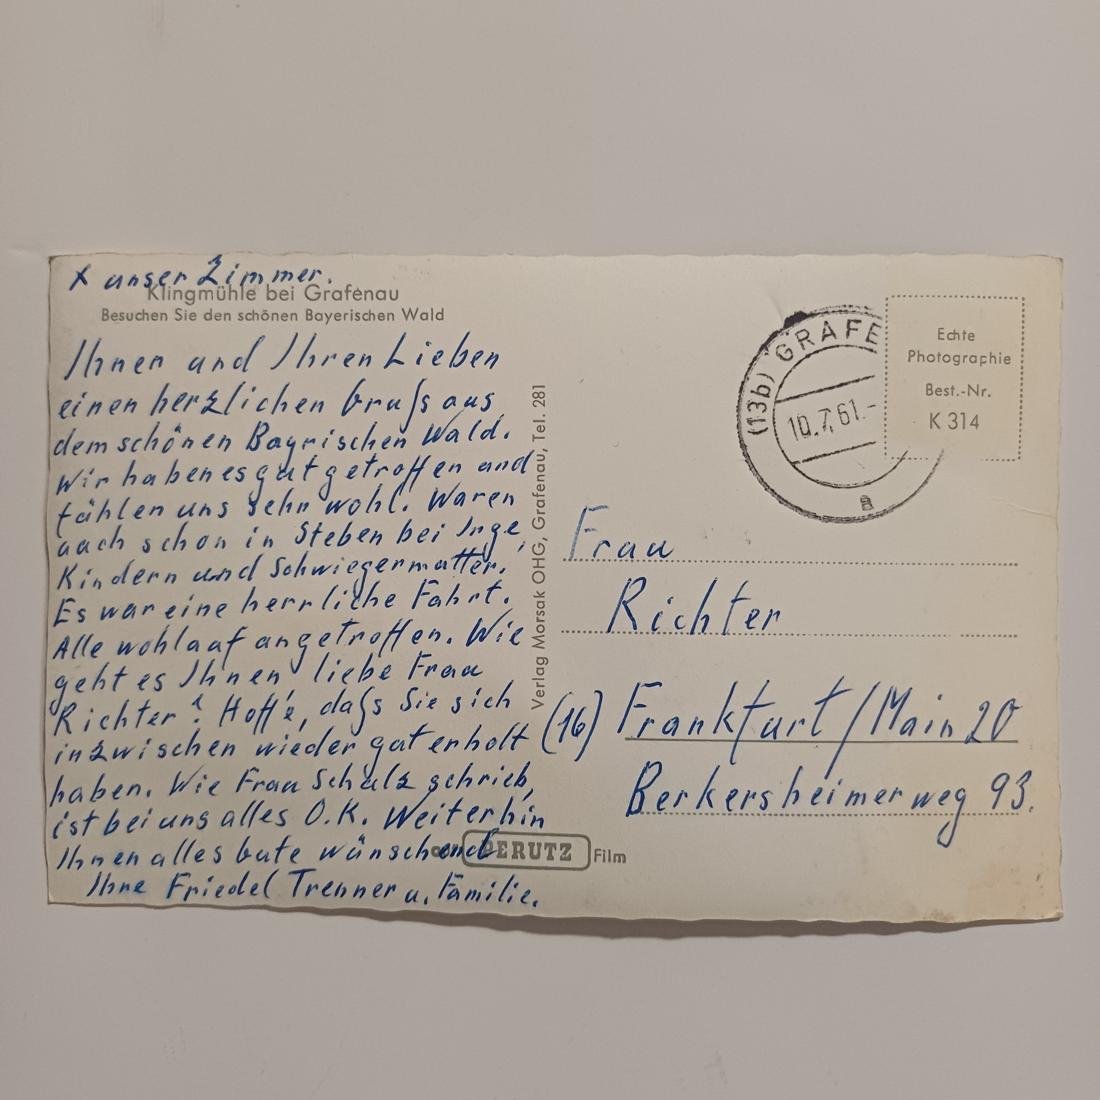 x unser Zimmer.
Klingmühle bei Grafenau
Besuchen Sie den schönen Bayerischen Wald
Ihnen und Ihren Lieben
einen herzlichen Gruß aus
dem schönen Bayrischen Wald.
Wir haben es gut getroffen und
fühlen uns sehr wohl. Waren
auch schon in Steben bei Inge,
Kindern und Schwiegermutter.
Es war eine herrliche Fahrt.
Alle wohlauf angetroffen. Wie
geht es Ihnen liebe Frau
Richter? Hoffe, daß Sie sich
inzwischen wieder gut erholt
haben. Wie Frau Schulz schrieb,
ist bei uns alles O.K. Weiterhin
Ihnen alles Gute wünschend
Ihre Friedel Trenner u. Familie.
Verlag Morsak OHG, Grafenau, Tel. 281
PERUTZ Film
(13b) GRAFE
10.7.61.-
a
Echte
Photographie
Best.-Nr.
K 314
Frau
Richter
(16) Frankfurt/Main 20
Berkersheimerweg 93.